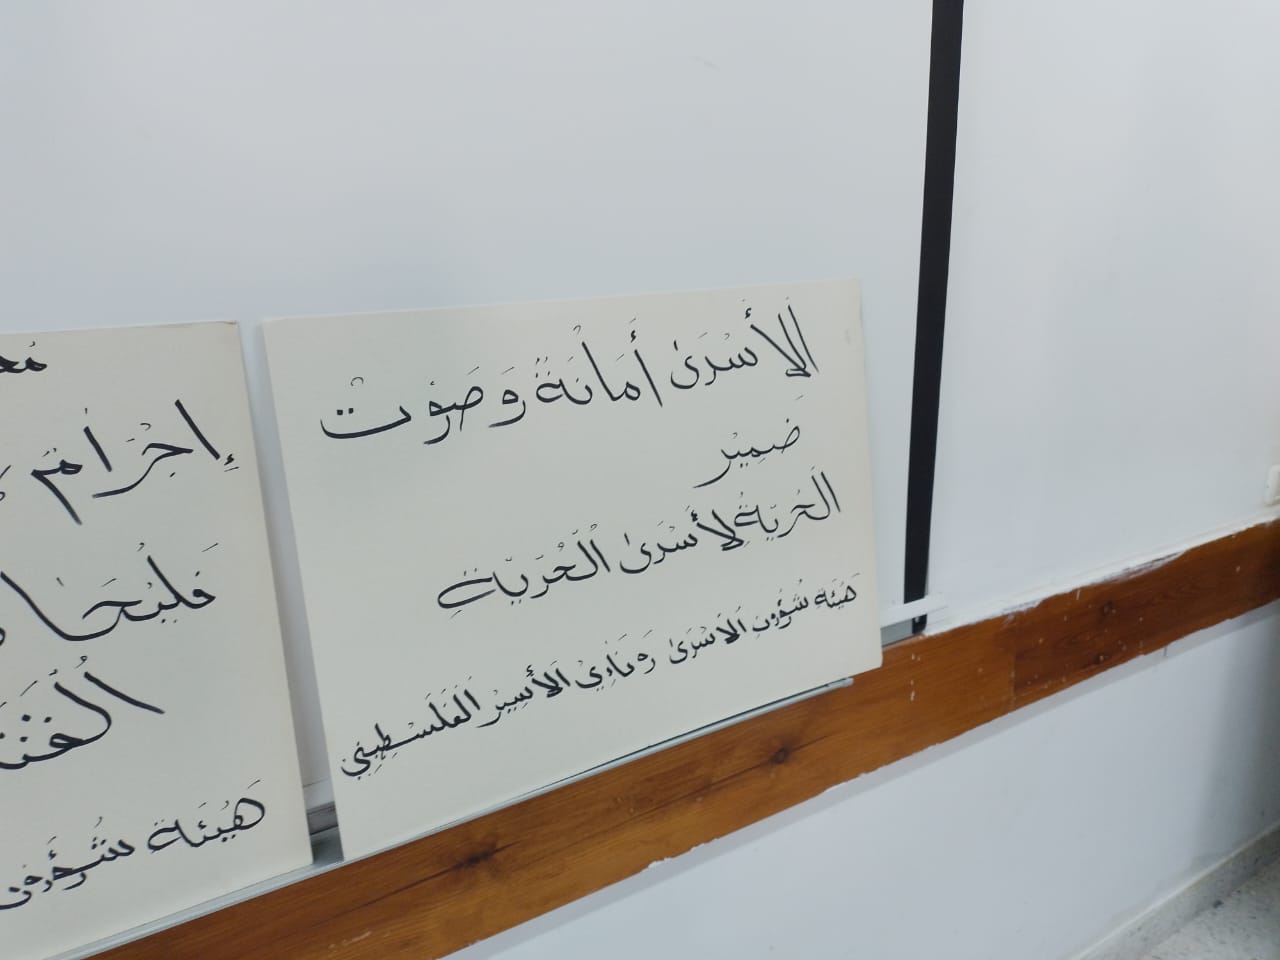 الأَسْرَىٰ أَمَانَةٌ وَصَوْتْ
ضَمِيْر
الْحُرِيَةُ لِأَسْرَىٰ الْحُرِيَّةِ
هَيْئَة شُؤُونِ الَأَسْرَىٰ وَنَادِيْ الَأَسِيْر الفَلَسْطِيْنِي
إِجْرَام
فَلْيُحَا
هَيْئَة شُؤُون